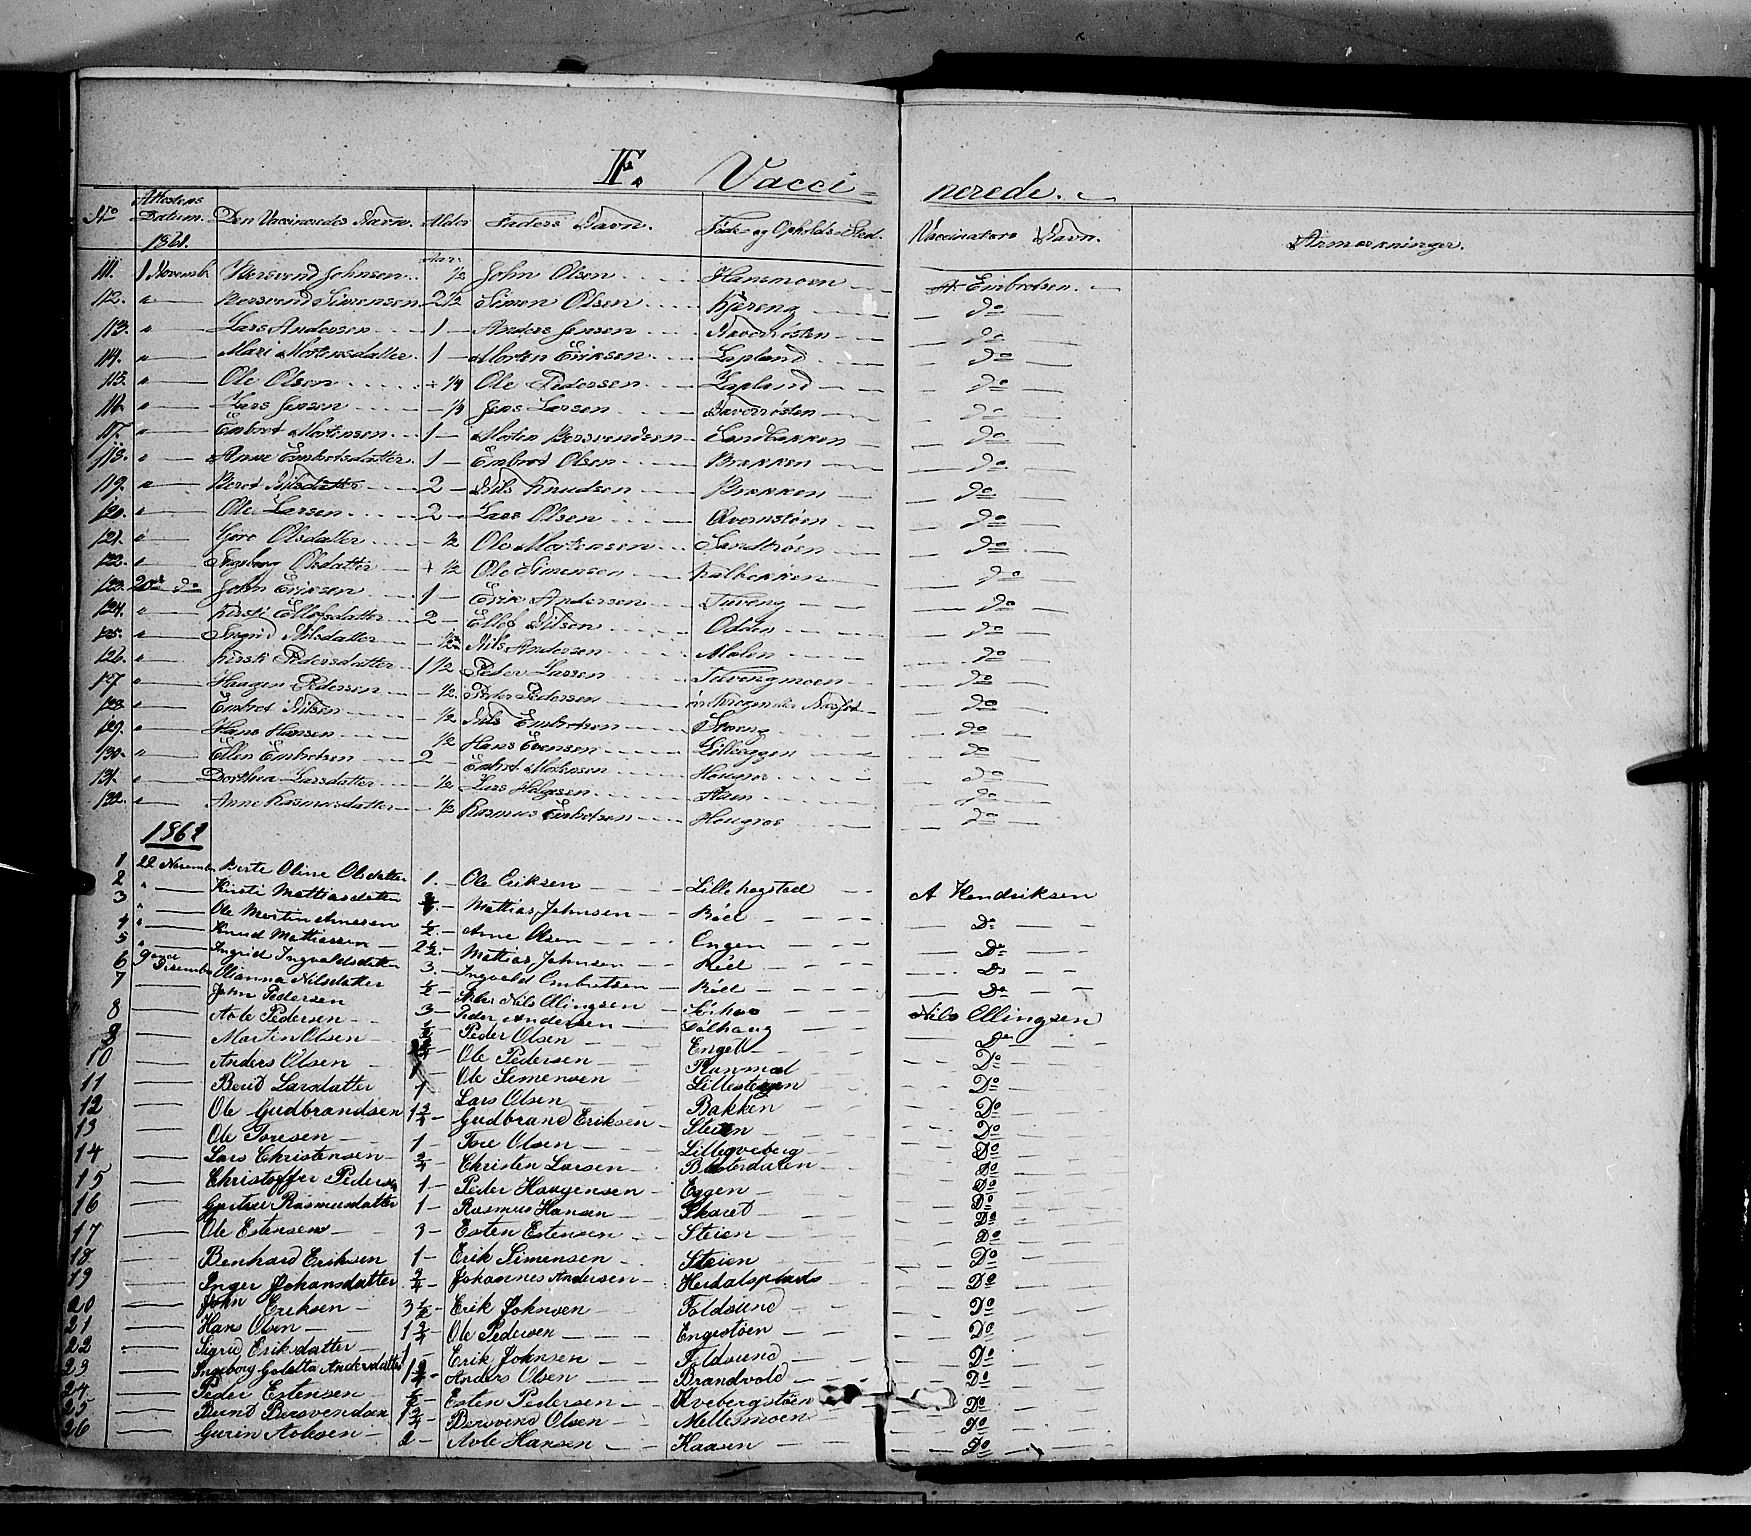 F. Vaccinerede.
No Attestens Datum. Den Vaccineredes Navn. Alder Faders Navn. Føde- og Opholds-Sted. Vaccinators Navn. Anmærkninger.
1861. Aar.
111. 1 Novembr Bersvend Johnsen 1/2 John Olsen Hansmoen A. Embretsen
112. " Bersvend Simensen 2 1/2 Simen Olsen Kjereng do
113. " Lars Andersen 1 Anders Jensen do
114. " Mari Mortensdatter 1 Morten Eriksen Lapland do
115. " Ole Olsen 1/4 Ole Pedersen Lapland do
116. " Lars Jensen Jens Larsen do
117. " Embret Mortensen 1 Morten Bersvendsen Sandbakken do
118. " Anne Embretsdatter 1 Embret Olsen Bakken do
119. " Beret Nilsdatter 2 Nils Knudsen Bakken do
120. " Ole Larsen 2 Lars Olsen Qvernstøen do
121. " Gjøre Olsdatter 1/2 Ole Mortensen Sandtrøen do
122. " Ingeborg Olsdatter 1/2 Ole Simensen do
123. do John Eriksen 1 Erik Andersen Tuveng do
124. " Kirsti Ellefsdatter 2 Ellef Nilsen Odden do
125. " Ingrid Nilsdatter 1/2 Nils Andersen Moen do
126. " Kirsti Pedersdatter 1 1/2 Peder Larsen Tuvengmoen do
127. " Haagen Pedersen 1/2 Peder Pedersen do
128. " Embret Nilsen 1/2 Nils Embretsen do
129. " Hans Hansen 1/2 Hans Evensen Lilleeggen do
130. " Ellen Embretsen 2 Embret Mortensen Hougros do
131. " Dorthea Larsdatter 1/2 Lars do
132. " Anne Rasmusdatter 1/2 Rasmus Embretsen Hougros do
1862
1 22 Novembr Berte Oline Olsdatter 1. Ole Eriksen Lillehogstad A Hendriksen
2 " Kirsti Mattiasdatter Mattias Johnsen Røel Do
3 " Ole Martin Arnesen 1/2 Arne Olsen Engen Do
4 " Knud Mattiassen 2 1/2 Mattias Johnsen Røel Do
5 " Ingrid Ingvaldsdatter 3. Ingvald Embretsen Røel Do
6 9 Desember Olianna Nilsdatter 1/2 Nils Ellingsen Nils Ellingsen
7 John Pedersen 3 Peder Andersen Do
8 Avle Pedersen 1/2 Peder Olsen Engel Do
9 Martin Olsen Ole Pedersen Do
10 Anders Olsen 1 Ole Simensen Do
11 Berit Larsdatter 1 Lars Olsen Bakken Do
12 Ole Gudbrandsen 1 3/4 Gudbrand Eriksen Steien Do
13 Ole Toresen 1 Tore Olsen Lilleqveberg Do
14 Lars Christensen 3/4 Christen Larsen Do
15 Christoffer Pedersen 1 Peder Haagensen Eggen Do
16 Rasmusdatter 1 Rasmus Hansen Skaret Do
17 Ole Estensen 3 Esten Estensen Steien Do
18 Benhard Eriksen 1 Erik Simensen Steien Do
19 Inger Johansdatter 3/4 Johannes Andersen Heidalsplads Do
20 John Eriksen 3 1/2 Erik Johnsen Foldsund Do
21 Hans Olsen 1 3/4 Ole Pedersen Engestøen Do
22 Sigrid Eriksdatter 1 Erik Johnsen Foldsund Do
23 Ingeborg Goletta Andersdatter 1 3/4 Anders Olsen Brandvold Do
24 Peder Estensen 1/2 Esten Pedersen Kvebergstøen Do
25 Berit Bersvendsen 1 3/4 Bersvend Olsen Mellesmoen Do
26 Gurin Avlesen 2 Avle Hansen Kaasen Do